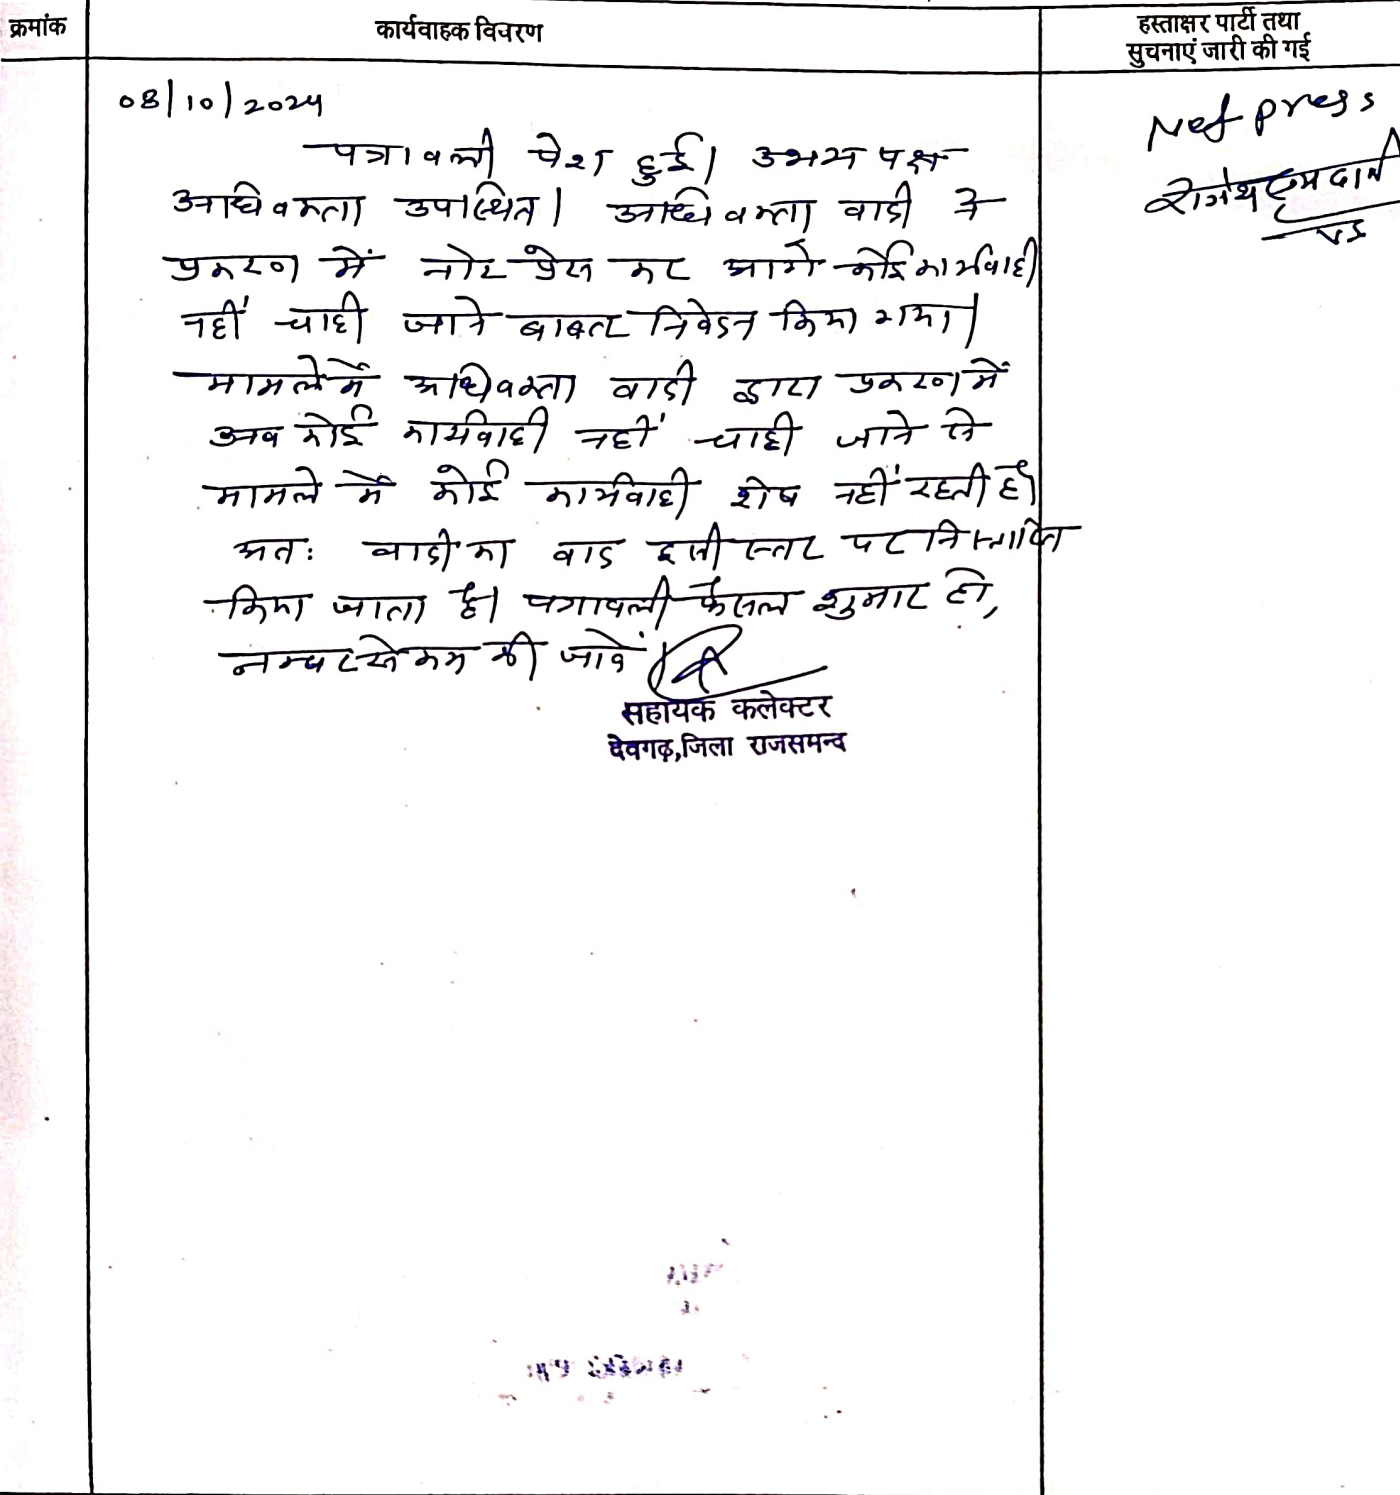 क्रमांक
कार्यवाहक विवरण
हस्ताक्षर पार्टी तथा
सुचनाएं जारी की गई
08/10/2024
पत्रावली पेश हुई। उभय पक्ष
अधिवक्ता उपस्थित। अधिवक्ता वादी ने
प्रकरण में नोट प्रेस कर आगे कोई कार्यवाही
नहीं चाही जाने बाबत निवेदन किया गया।
मामले में अधिवक्ता वादी द्वारा प्रकरण में
अब कोई कार्यवाही नहीं चाही जाने से
मामले में कोई कार्यवाही शेष नहीं रहती है।
अतः वादी का वाद इसी स्तर पर निस्तारित
किया जाता है। पत्रावली फैसल शुमार हो,
नम्बर से कम की जावें
सहायक कलेक्टर
देवगढ़,जिला राजसमन्द
Not press